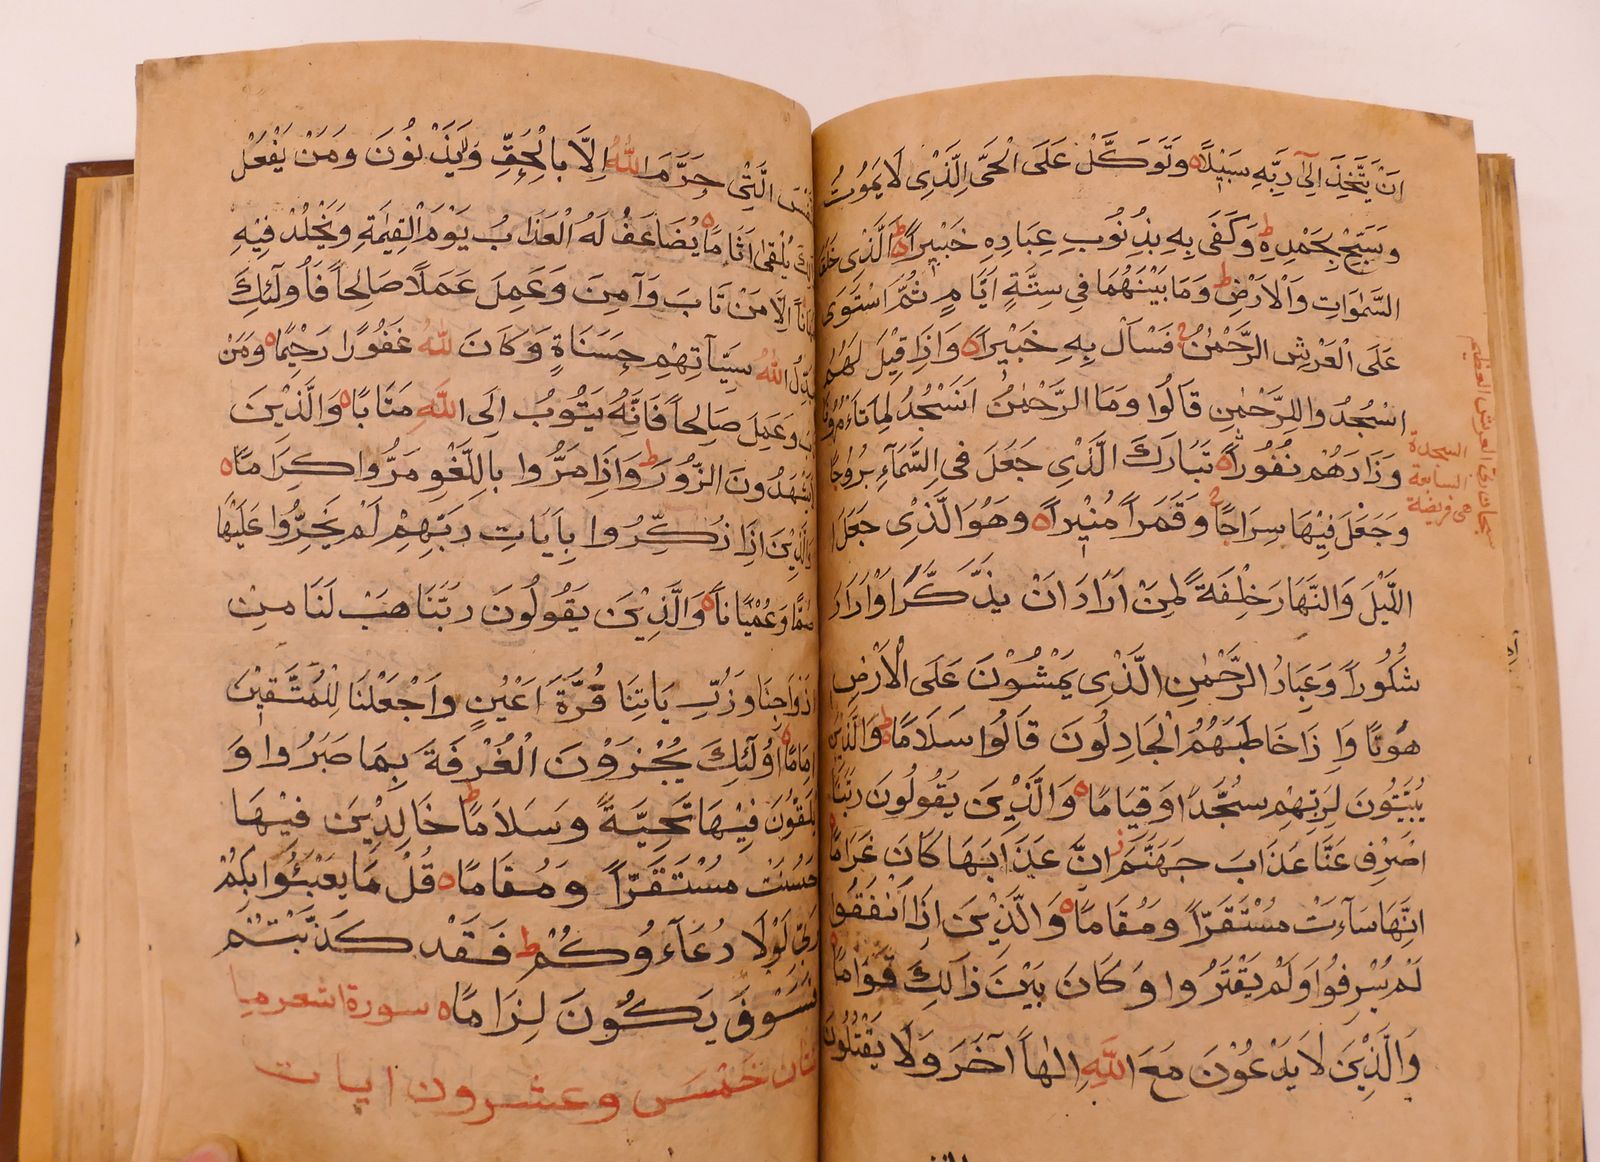 اَنْ يَتَّخِذَ اِلٰى رَبِّهِ سَبِيْلًا وَتَوَكَّلْ عَلَى الْحَىِّ الَّذِىْ لَا يَمُوْتُ
وَسَبِّحْ بِحَمْدِهٖ ط وَكَفٰى بِهِ بِذُنُوْبِ عِبَادِهِ خَبِيْرًا الَّذِىْ خَلَقَ
السَّمٰوَاتِ وَالْاَرْضِ ط وَمَا بَيْنَهُمَا فِىْ سِتَّةِ اَيَّامٍ ثُمَّ اسْتَوٰى
عَلَى الْعَرْشِ الرَّحْمٰنُ فَسْاَلْ بِهِ خَبِيْرًا وَاِذَا قِيْلَ لَهُمُ
اسْجُدُوا لِلرَّحْمٰنِ قَالُوا وَمَا الرَّحْمٰنُ اَنَسْجُدُ لِمَا تَاْمُرُنَا
وَزَادَهُمْ نُفُوْرًا تَبَارَكَ الَّذِىْ جَعَلَ فِى السَّمَآءِ بُرُوْجًا
وَجَعَلَ فِيْهَا سِرَاجًا وَقَمَرًا مُنِيْرًا وَهُوَ الَّذِىْ جَعَلَ
اللَّيْلَ وَالنَّهَارَ خِلْفَةً لِمَنْ اَرَادَ اَنْ يَذَّكَّرَ اَوْ اَرَادَ
شُكُوْرًا وَعِبَادُ الرَّحْمٰنِ الَّذِىْ يَمْشُوْنَ عَلَى الْاَرْضِ
هَوْنًا وَاِذَا خَاطَبَهُمُ الْجَادِلُونَ قَالُوا سَلَامًا ط وَالَّذِيْنَ
يُبَيِّتُونَ لِرَبِّهِمْ سُجَّدًا وَقِيَامًا وَالَّذِيْنَ يَقُولُونَ رَبَّنَا
اصْرِفْ عَنَّا عَذَابَ جَهَنَّمَ اِنَّ عَذَابَهَا كَانَ غَرَامًا
اِنَّهَا سَآءَتْ مُسْتَقَرًّا وَمُقَامًا وَالَّذِيْنَ اِذَا اَنْفَقُوا
لَمْ يُسْرِفُوا وَلَمْ يَقْتَرُوا وَكَانَ بَيْنَ ذَالِكَ قَوَامًا
وَالَّذِيْنَ لَا يَدْعُوْنَ مَعَ اللّٰهِ اِلٰهًا آخَرَ وَلَا يَقْتُلُونَ
السجدة
السابعة
هى فريضة
سبحانك رب العرش العظيم
الَّتِىْ حَرَّمَ اللّٰهُ اِلَّا بِالْحَقِّ وَلَا يَزْنُوْنَ وَمَنْ يَفْعَلْ
يُلْقٰى اَثَامًا يُضَاعَفُ لَهُ الْعَذَابُ يَوْمَ الْقِيٰمَةِ وَيَخْلُدْ فِيْهِ
اِلَّا مَنْ تَابَ وَآمِنَ وَعَمِلَ عَمَلًا صَالِحًا فَاُولٓئِكَ
اللّٰهُ سَيِّآتِهِمْ حَسَنَاةٍ وَكَانَ للّٰهُ غَفُوْرًا رَحِيْمًا وَمَنْ
وَعَمِلَ صَالِحًا فَاِنَّهُ يَتُوْبُ اِلَى اللّٰهِ مَتَابًا وَالَّذِيْنَ
يَشْهَدُونَ الزُّوْرَ ط وَاِذَا مَرُّوا بِاللَّغْوِ مَرُّوا كِرَامًا
وَالَّذِيْنَ اِذَا ذُكِّرُوا بِآيَاتِ رَبِّهِمْ لَمْ يَخِرُّوا عَلَيْهَا
صُمًّا وَعُمْيَانًا وَالَّذِيْنَ يَقُولُونَ رَبَّنَا هَبْ لَنَا مِنْ
اَزْوَاجِنَا وَذُرِّيَاتِنَا قُرَّةَ اَعْيُنٍ وَاجْعَلْنَا لِلْمُتَّقِيْنَ
اِمَامًا اُولٓئِكَ يُجْزَوْنَ الْغُرْفَةَ بِمَا صَبَرُوا وَ
يُلَقَّوْنَ فِيْهَا تَحِيَّةً وَسَلَامًا ط خَالِدِيْنَ فِيْهَا
حَسُنَتْ مُسْتَقَرًّا وَمُقَامًا قُلْ مَا يَعْبَئُوا بِكُمْ
رَبِّى لَوْلَا دُعَآءُوكُمْ ط فَقَدْ كَذَّبْتُمْ
فَسَوْفَ يَكُوْنَ لِزَامًا سورة اشعر ميا
تان خَمْسَ وعشرون ايات